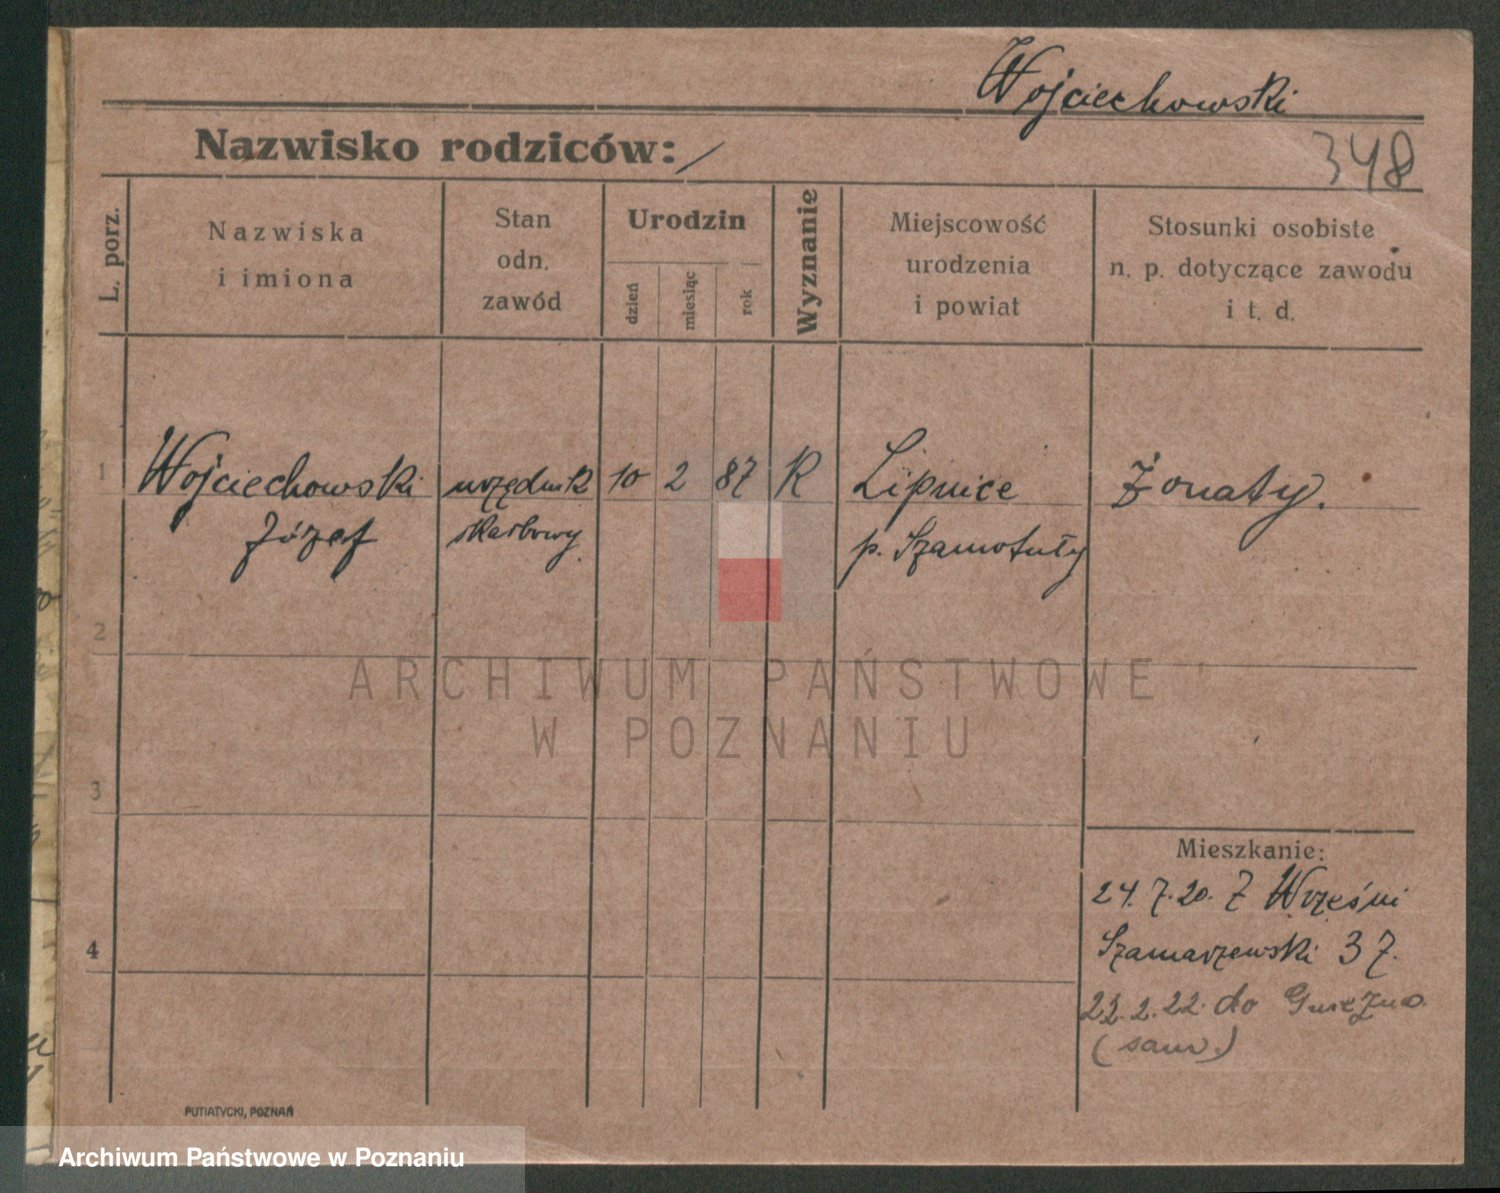 Wojciechowski
Nazwisko rodziców: /
348
L. porz.
Nazwiska
i imiona
Stan
odn.
zawód
Urodzin
dzień
miesiąc
rok
Wyznanie
Miejscowość
urodzenia
i powiat
Stosunki osobiste
n. p. dotyczące zawodu
i t. d.
1
Wojciechowski
Józef
urzędnik
skarbowy
10
2
87
R
Lipnice
p. Szamotuły
Żonaty.
2
ARCHIWUM PAŃSTWOWE
W POZNANIU
3
Mieszkanie:
24.7.20. Z Wrześni
Szamarzewski 37.
4
22.2.22. do Gniezna.
(sam.)
PUTIATYCKI, POZNAŃ
Archiwum Państwowe w Poznaniu